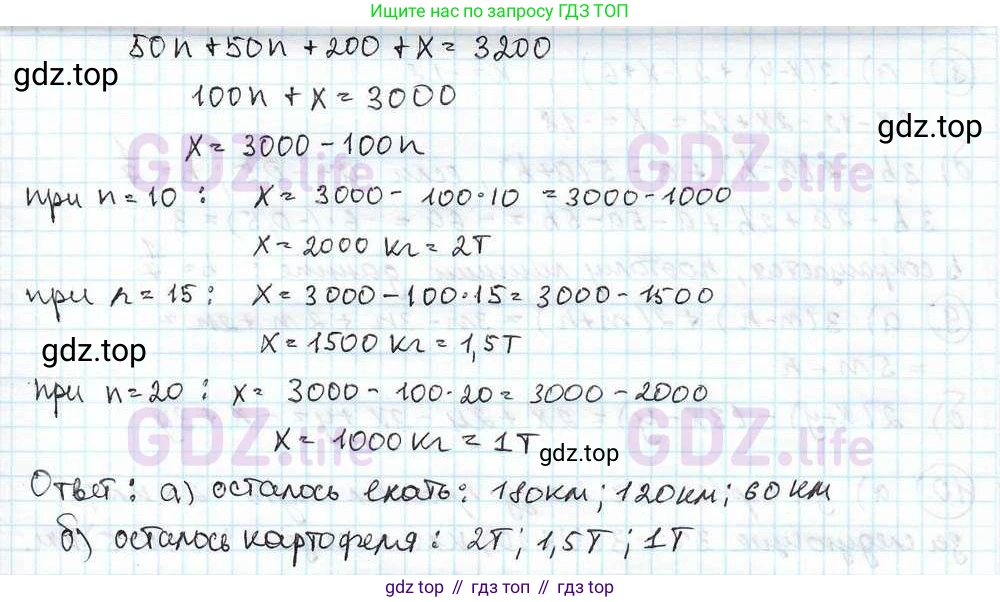 Ищите нас по запросу ГДЗ ТОП
50n + 50n + 200 + x = 3200
gdz.top
100n + x = 3000
gdz.top
x = 3000 - 100n
GDZ.life GDZ.life
при n = 10 : x = 3000 - 100·10 = 3000 - 1000
x = 2000 кг = 2т
при n = 15 : x = 3000 - 100·15 = 3000 - 1500
x = 1500 кг = 1,5т
gdz.top
при n = 20 : x = 3000 - 100·20 = 3000 - 2000
GDZ.life GDZ.life
x = 1000 кг = 1т
gdz.top
Ответ: а) осталось ехать: 180км; 120км; 60км
б) осталось картофеля: 2т; 1,5т; 1т
gdz top // гдз топ // gdz.top